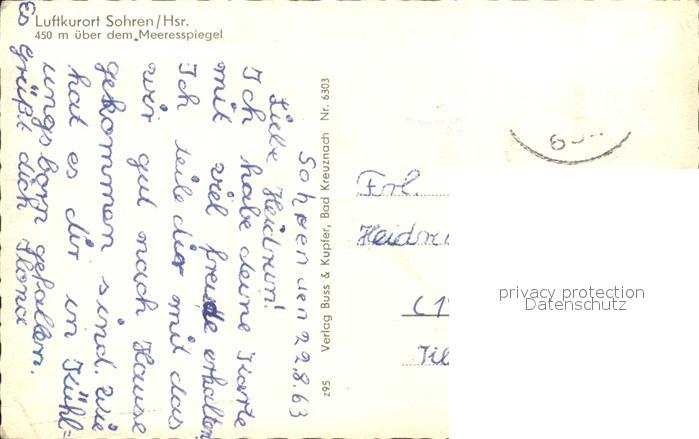 Luftkurort Sohren/Hsr.
450 m über dem Meeresspiegel
Sohren den 22.8.63
Liebe Heidrun!
Ich habe deine Karte
mit viel freude erhalten
Ich teile dir mit das
wir gut nach Hause
gekommen sind. Wie
hat es dir in Kühl=
ungsborn gefallen.
Es grüßt dich Ilona
Verlag Buss & Kupfer, Bad Kreuznach Nr. 6303
z95
Frl.
privacy protection
Datenschutz